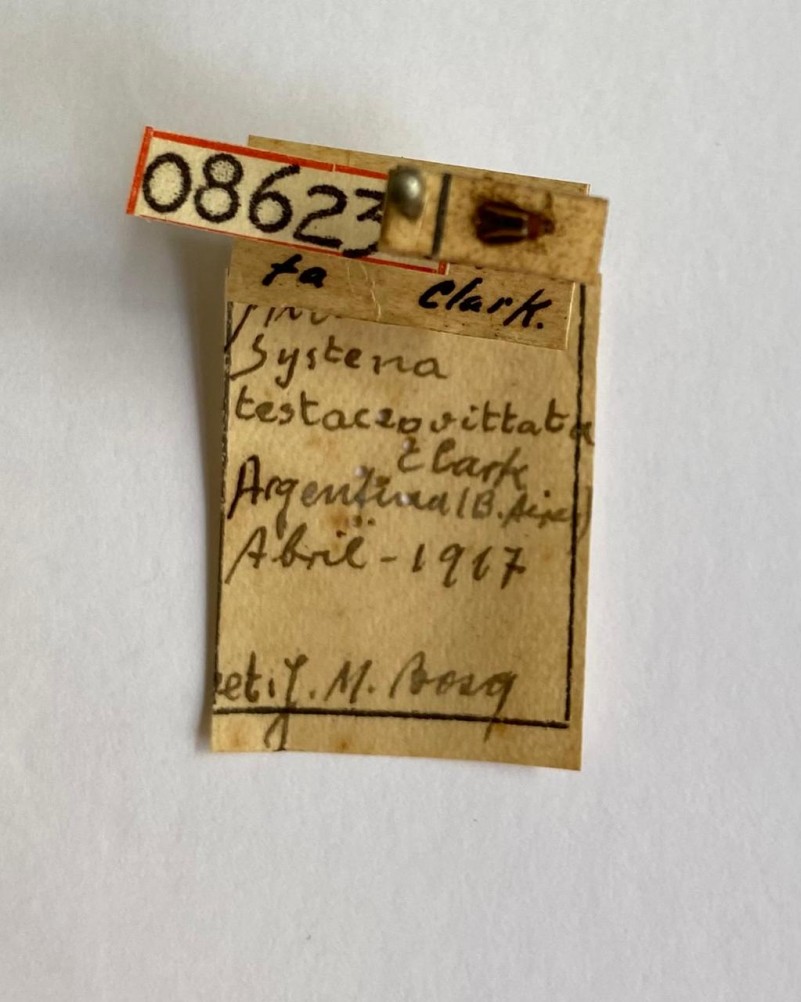 08623
ta Clark.
Systena
testaceovittata
Clark
Argentina (B. Aires)
Abril - 1917
et. J. M. Bosq